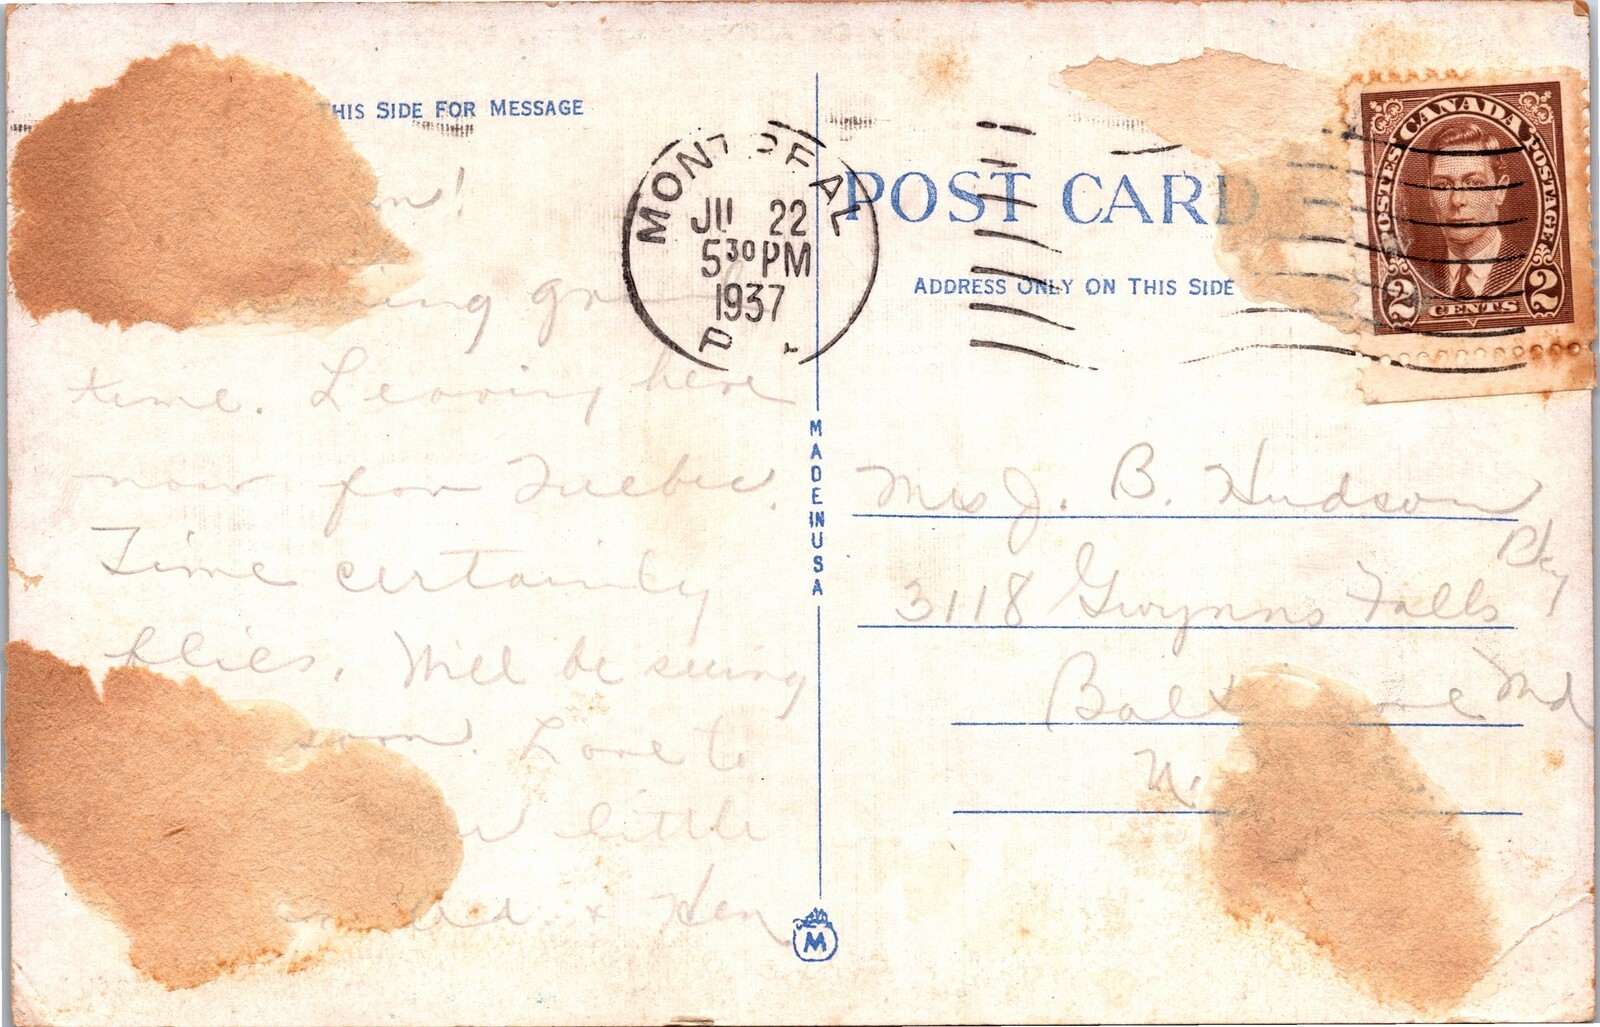 THIS SIDE FOR MESSAGE
time. Leaving here
now for Quebec.
Time certainly
flies. Will be seeing
soon. Love to
little
& Hen
MONTREAL
JUL 22
5 30 PM
1937
P
POST CARD
ADDRESS ONLY ON THIS SIDE
CANADA
POSTES POSTAGE
2 CENTS 2
MADE IN USA
M
Mrs J. B. Hudson
3118 Gwynns Falls Pky
Baltimore Md